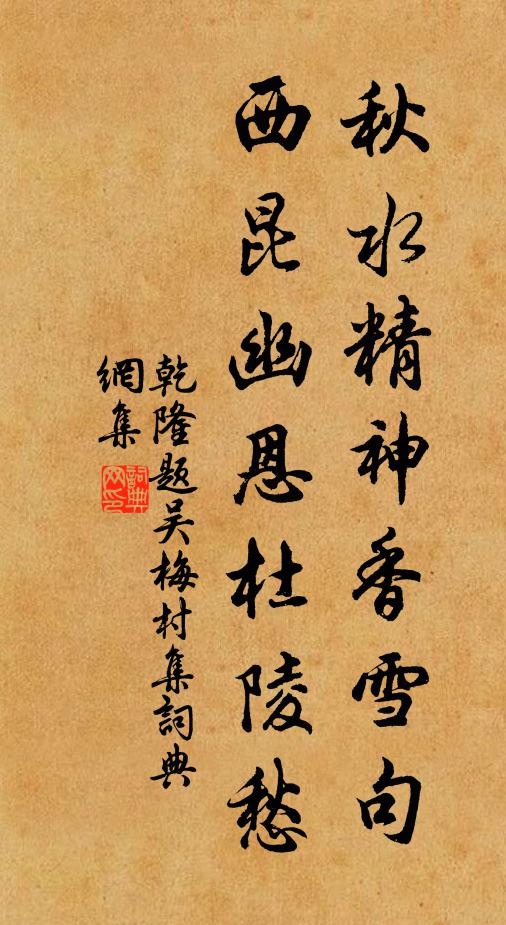 秋水精神香雪句
西昆幽恩杜陵愁
乾隆题吴梅村集詞典
網集
詞典
网印